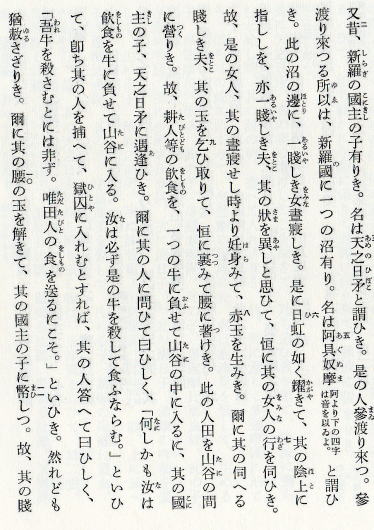 又昔、新羅の國主の子有りき。名は天之日矛と謂ひき。是の人參渡り來つ。參
渡り來つる所以は、新羅國に一つの沼有り。名は阿具奴摩阿より下の四字は音を以ゐよ。と謂ひ
き。此の沼の邊に、一賤しき女晝寢しき。是に日虹の如く耀きて、其の陰上に
指ししを、亦一賤しき夫、其の狀を異しと思ひて、恒に其の女人の行を伺ひき。
故、是の女人、其の晝寢せし時より妊身みて、赤玉を生みき。爾に其の伺へる
賤しき夫、其の玉を乞ひ取りて、恒に裹みて腰に著けき。此の人田を山谷の間
に營りき。故、耕人等の飮食を、一つの牛に負せて山谷の中に入るに、其の國
主の子、天之日矛に遇逢ひき。爾に其の人に問ひて曰ひしく、「何しかも汝は
飮食を牛に負せて山谷に入る。汝は必ず是の牛を殺して食ふならむ。」といひ
て、卽ち其の人を捕へて、獄囚に入れむとすれば、其の人答へて曰ひしく、
「吾牛を殺さむとには非ず。唯田人の食を送るにこそ。」といひき。然れども
猶赦さざりき。爾に其の腰の玉を解きて、其の國主の子に幣しつ。故、其の賤